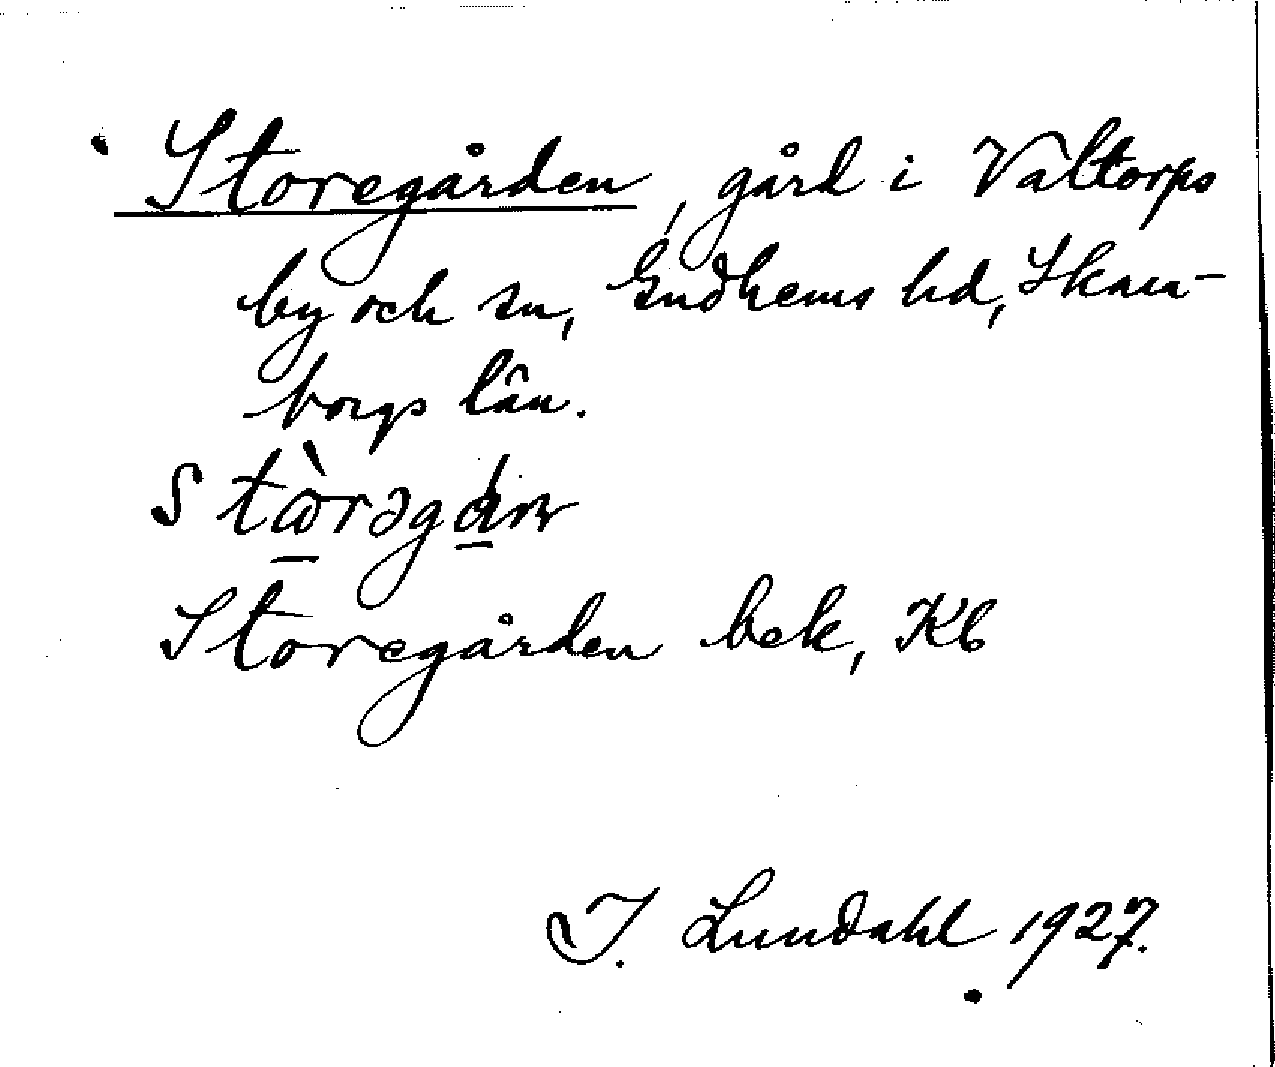 Storegården, gård i Valtorps
by och sn, Gudhems hd, Skara-
borgs län.
Storegården bek, Kb
I. Lundahl 1927.